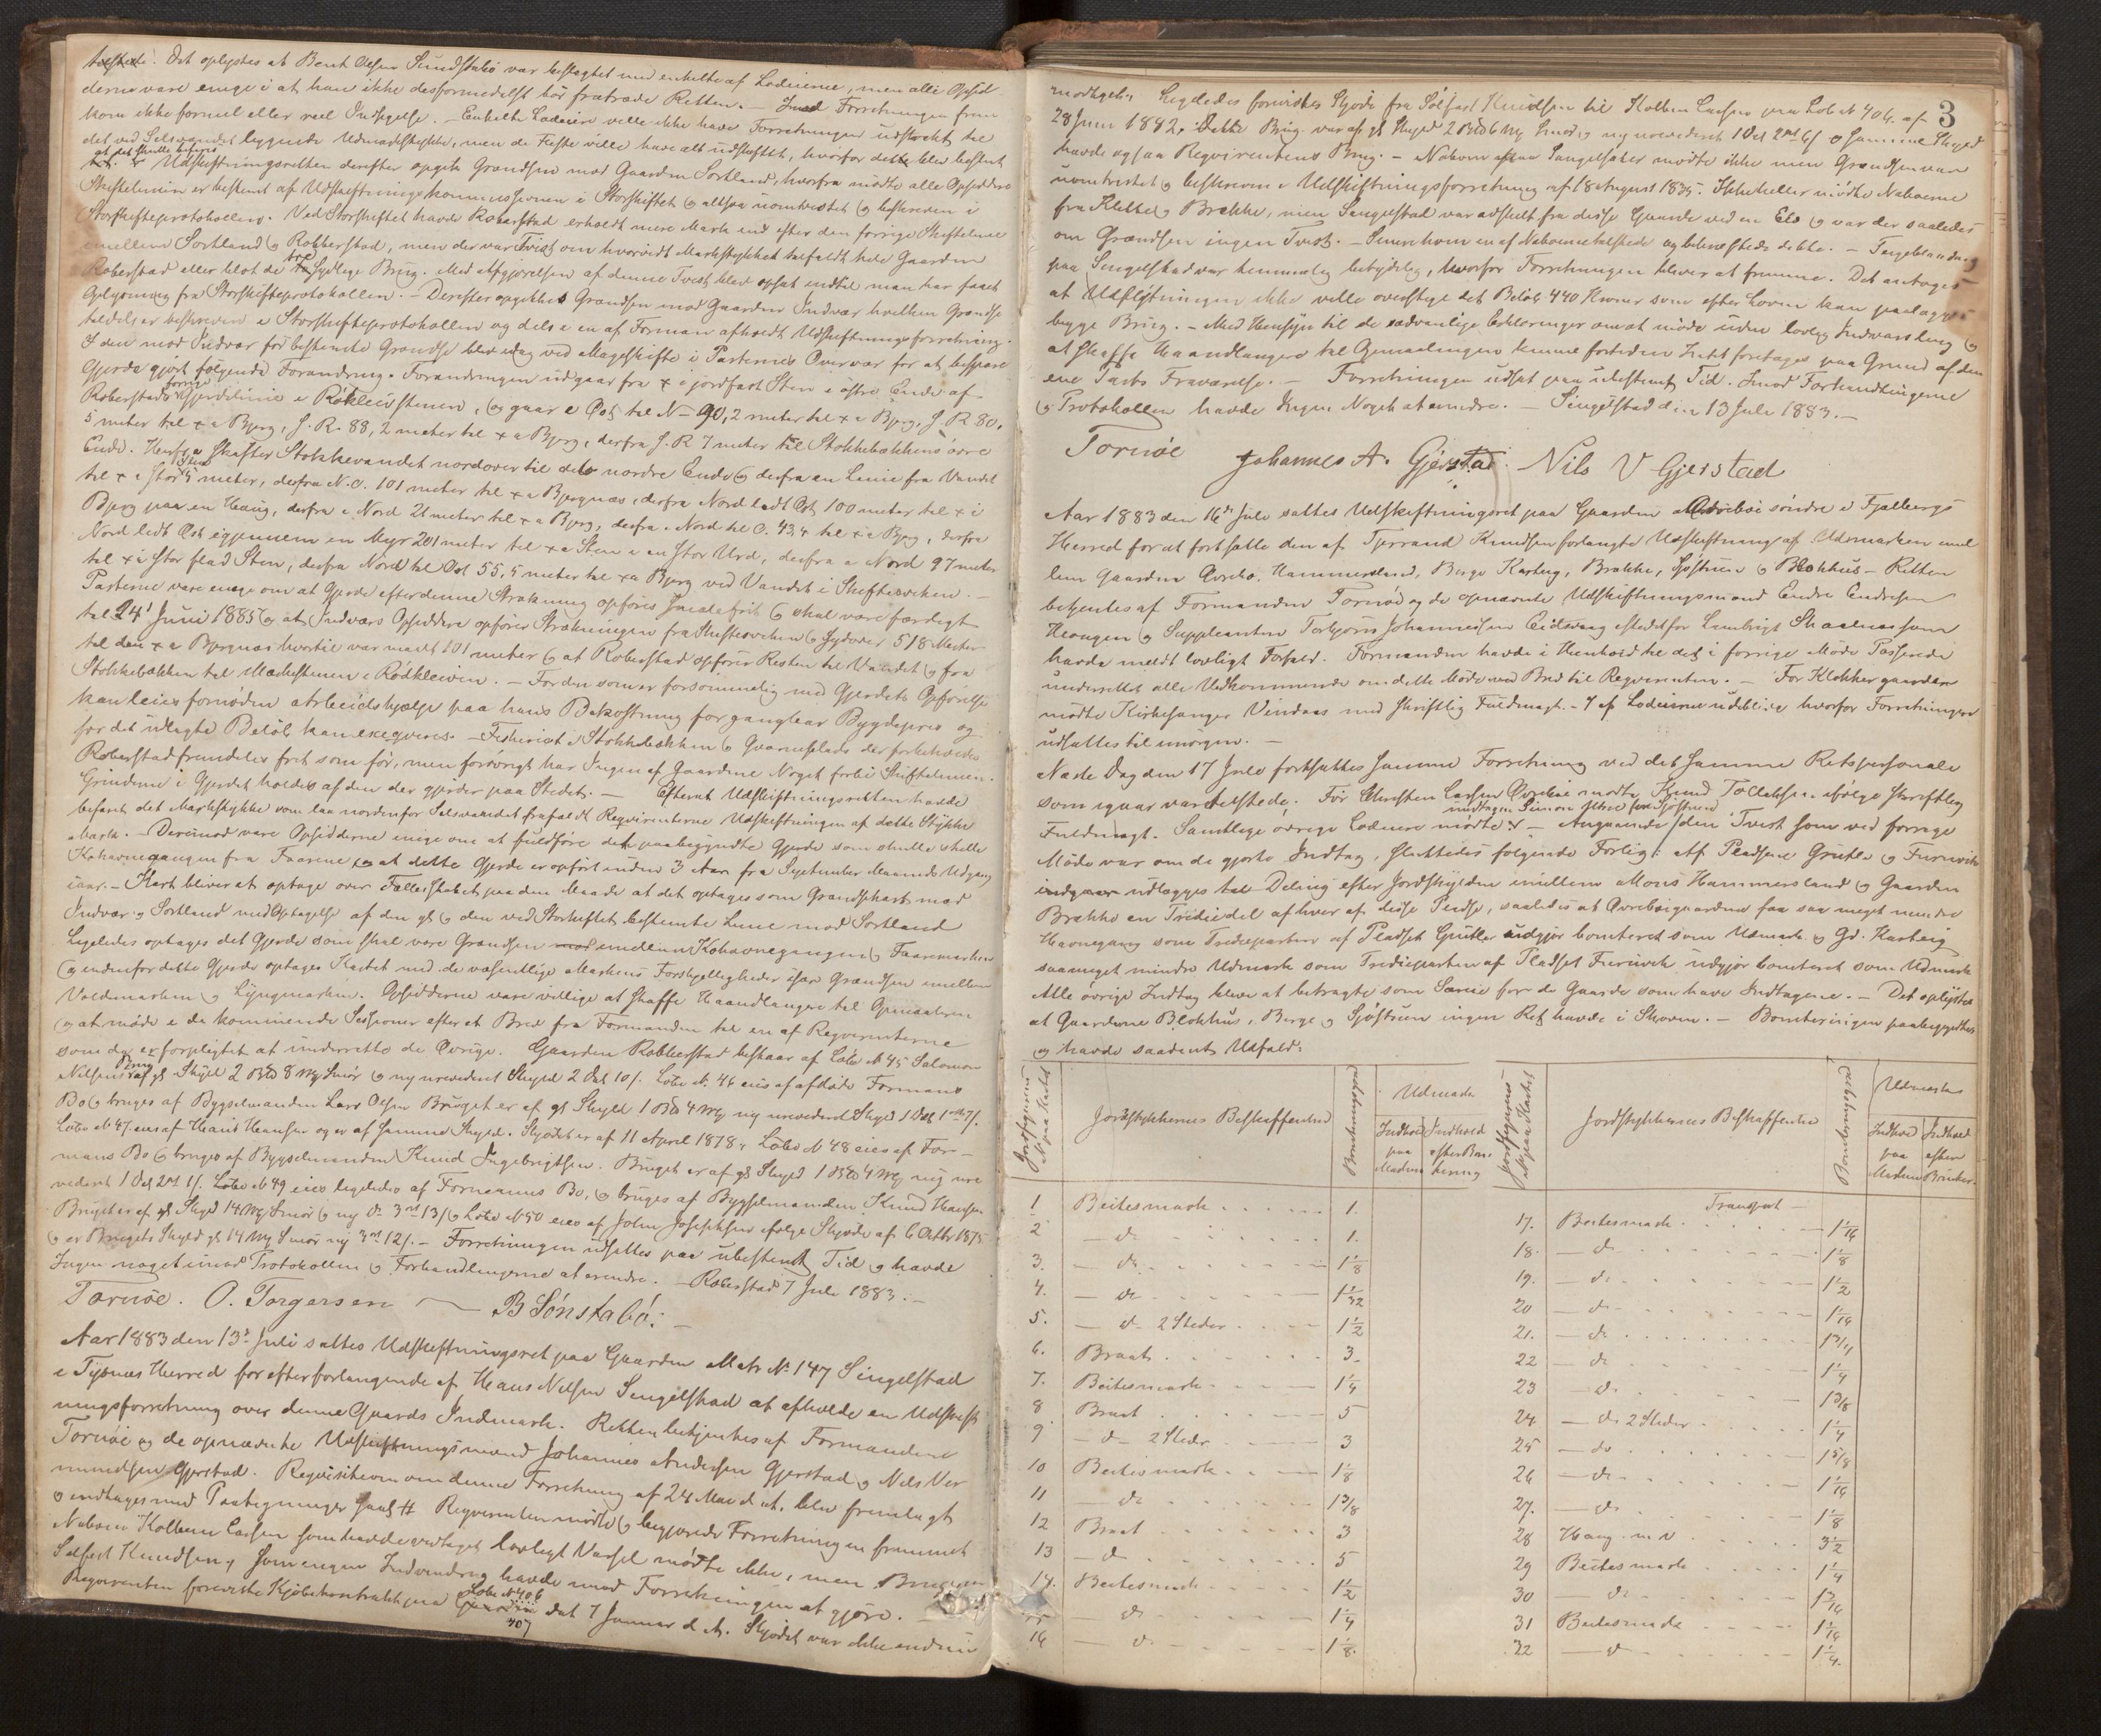 tilstede. Det oplystes at Bernt Olsen Sundstabø var beslægtet med enkelte af Lodeierne, men alle Opsid
derne vare enige i at han ikke desformedelst bør fratræde Retten. – Imod Forretningen frem
kom ikke formel eller reel Indsigelse. – Enkelte Lodeiere ville ikke have Forretningen udstrakt til
det ved Selsvandet liggende Udmarkstykke, men de Fleste ville have alt udskiftet, hvorfor dette blev bestemt
at det skulle
Udskiftningsretten derefter opgik Grændsen mod Gaarden Sortland, hvorfra mødte alle Opsiddere
Skiftelinien er bestemt af Udskiftningskommissionen i Storskiftet og altsaa uomtvistet og beskreven i
Storskifteprotokollen. Ved Storskiftet havde Roberstad erholdt mere Mark end efter den forrige Skiftelinie
mellem Sortland og Robberstad, men der var Tvist om hvorvidt Markstykket tilfaldt hele Gaarden
Roberstad eller blot de tre Sydlige Brug. Med Afgjørelsen af denne Tvist blev opsat indtil man har faaet
Oplysning fra Storskifteprotokollen. – Derefter opgikkes Grændsen mod Gaarden Indvær hvilken Grændse
tildels er beskreven i Storskifteprotokollen og dels i en af Forman afholdt Udskiftningsforretning.
I den mod Indvær før bestemte Grændse blev idag ved Mageskifte i Parternes Overvær for at bespare
Gjerde gjort følgende Forandring. Forandringen udgaar fra x i jordfast Sten i østre Ende af
Roberstads forrige Gjerdelinie i Rökleivstenen, og gaar i Øst til N – 90,2 meter til x i Bjerg, S. R. 80.
5 meter til x i Bjerg, S. R. 88,2 meter til x i Bjerg, derfra S. R 7 meter til Stokkebækkens øvre
Ende. Herfra skifter Stokkevandet nordover til dets nordre Ende og derfra en Linie fra Vandet
til x i stor Sten 15 meter, derfra N.O. 101 meter til x i Bjergnæs, derfra Nord ledt Øst 100 meter til x i
Bjerg paa en Haug, derfra i Nord 21 meter til x i Bjerg, derfra i Nord til O. 43,4 til x i Bjerg, derfra
Nord ledt Øst igjennem en Myr 201 meter til x i Sten i en stor Urd, derfra i Nord 97 meter
til x i stor flad Sten, derfra Nord til Øst 55,5 meter til x i Bjerg ved Vandet i Skiftesviken. –
Parterne vare enige om at Gjerde efter denne Strækning opføres Smalefrit og skal være færdigt
til 24' Juni 1885 og at Indværs Opsiddere opfører Strækningen fra Skiftesviken og Sydover 518 Meter
til den x i Bjergnæs hvortil var maalt 101 meter og at Roberstad opfører Resten til Vandet og fra
Stokkebækken til Mærkestenen i Rödkleiven. – For den som er forsømmelig med Gjerdets Opførelse
kan leies fornøden Arbeidshjælp paa hans Bekostning for gangbar Bygdepris og
for det udlagte Beløb kan exeqveres. – Fiskeriet i Stokkebækken og Qværneplads der forbeholdes
Roberstad fremdeles fort som før, men forøvrigt har Ingen af Gaardene Noget forbi Skiftelinien.
Grinderne i Gjerdet holdes af den der gjerder paa Stedet. – Efterat Udskiftningsretten havde
befaret det Markstykke som laa nordenfor Selsvandet frafaldt Reqvirenterne Udskiftningen af dette Stykke
Mark. – Derimod vare Opsidderne enige om at fuldføre det paabegyndte Gjerde som skulle skille
Kohavnegangen fra Faarene og at dette Gjerde er opført inden 3 Aar fra September Maaneds Udgang
iaar. – Kart bliver at optage over Fællesskabet paa den Maade at det optages som Grændsekart mod
Indvær og Sortland med Optagelse af den gl og den ved Storskiftet bestemte Linie mod Sortland
Ligeledes optages det Gjerde som skal være Grændsen mellem Kohavnegangen og Faaremarken
og indenfor dette Gjerde optages Kartet med de væsentlige Markens Forskjelligheder især Grændsen imellem
Voldemarken og Lyngmarken. Opsidderne vare villige at skaffe Haandlangere til Opmaalingen
og at møde i de kommende Sessioner efter et Bud fra Formanden til en af Reqvirenterne
som da er forpligtet at underrette de Øvrige. Gaarden Robberstad bestaar af Løbe № 45 Salomon
Nilsens Brug af gl Skyld 2 Bpd 8 mrk Smør og ny urevideret Skyld 2 Dal 10/. Løbe № 46 eies af afdøde Formans
Bo og bruges af Bygselmanden Lars Olsen Bruget er af gl Skyld 1 Bpd 4 mrk ny urevideret Skyld 1 Dal 1 ort 7/.
Løbe № 47 eies af Hans Hansen og er af samme Skyld. Skjødet er af 11 April 1878. Løbe № 48 eies af For–
mans Bo og bruges af Bygselmanden Knud Ingebrigtsen. Bruget er af gl Skyld 1 Bpd 4 mrk ny ure
videret 1 Dal 2 ort 1/. Løbe № 49 eies ligeledes af Formanns Bo, og bruges af Bygselmanden Knud Hansen
Bruget er af gl Skyld 14 mrk Smør og ny do 3 ort 13/ og Løbe № 50 eies af John Josephsen ifølge Skjøde af 6 Octbr 1875
og er Brugets Skyld gl 14 mrk Smør ny 3 ort 12/. – Forretningen udsattes paa ubestemt Tid og havde
Ingen noget imod Protokollen og Forhandlingerne at erindre. – Roberstad 7 Juli 1883. –
Tornöe. O. Torgersen — B Sönstabö. –
Aar 1883 den 13de Juli sattes Udskiftningsret paa Gaarden Matr № 147 Singelstad
i Tysnes Herred for efter forlangende af Hans Nilsen Singelstad at afholde en Udskift
ningsforretning over denne Gaards Indmark. Retten betjentes af Formanden
Tornöe og de opnævnte Udskiftningsmænd Johannes Andersen Gjerstad og Nils Ver
mundsen Gjerstad. Reqvisitionen om denne Forretning af 24 Mai d. A. blev fremlagt
og indtages med Paategninger saal. # Reqvirenten mødte og begjærede Forretningen fremmet
Naboen Kolbein Larsen som havde vedtaget lovligt Varsel mødte ikke, men Brugeren
Sølfest Knudsen, som ingen Indvending havde mod Forretningen at gjøre. –
Reqvirenten foreviste Kjøbekontrakt paa Løbe № 406
407 dat 7 Januar d. A. Skjødet var ikke endnu
3
modtaget. Ligeledes forevistes Skjøde fra Sølfest Knudsen til Kolben Larsen paa Løb № 406 af
28 Juni 1882. Dette Brug var af gl Skyld 2 Bpd 6 mrk Smør og ny urevideret 1 Dal 2 ort 6/ og samme Skyld
havde ogsaa Reqvirentens Brug. – Naboen paa Singelsaker mødte ikke men Grændsen var
uomtvistet og beskreven i Udskiftningsforretning af 18 August 1835. Ikkeheller mødte Naboerne
fra Klette og Brekke, men Singelstad var adskilt fra disse Gaarde ved en Elv og var der saaledes
om Grændsen ingen Tvist. – Senere kom en af Naboerne tilstede og bekræftede dette. – Teigeblanding
paa Singelstad var temmelig betydelig, hvorfor Forretningen bliver at fremme. Det antages
at Udflytningen ikke ville overstige det Beløb 440 Kroner som efter Loven kan paalægges
begge Brug. – Med Hensyn til de sædvanlige Erklæringer om at møde uden lovlig Indvarsling og
at skaffe Haandlangere til Opmaalingen kunne fortiden Intet foretages paa Grund af den
ene Parts Fraværelse. – Forretningen udsat paa ubestemt Tid. Imod Forhandlingerne
og Protokollen havde Ingen Noget at erindre. – Singelstad den 13 Juli 1883. –
Tornöe Johannes A. Gjerstad. Nils V Gjerstad
Aar 1883 den 16de Juli sattes Udskiftningsret paa Gaarden Øvrebø søndre i Fjelbergs
Herred for at fortsætte den af Tjerrand Knudsen forlangte Udskiftning af Udmarken mel
lem Gaarden Øvrebø, Hammersland, Berge Kartveg, Brække, Sjøstrøm og Blokhus – Retten
betjentes af Formanden Tornøe og de opnævnte Udskiftningsmænd Endre Endresen
Heongen og Suppleanten Torbjørn Johannesen Eidsvaag istedetfor Lambrigt Skaalnes som
havde meldt lovligt Forfald. Formanden havde i Henhold til det i forrige Møde Passerede
underrettet alle Vedkommende om dette Møde ved Bud til Reqvirenten. – For Klokkergaarden
mødte Kirkesanger Vindaas med skriftlig Fuldmagt. – 7 af Lodeierne udebleve hvorfor Forretningen
udsattes til imorgen. –
Næste Dag den 17 Juli fortsattes samme Forretning ved det samme Retspersonale
som igaar var tilstede. For Christen Larsen Øvrebøe mødte Knud Tollaksen ifølge skriftlig
Fuldmagt. Samtlige øvrige Lodeiere mødte – Angaaende den Tvist som ved forrige
Møde var om de gjorte Indtag, sluttedes følgende Forlig: Af Pladsene Grutle og Furuvik
udlægges til Deling efter Jordskylden imellem Mons Hammersland og Gaarden
Brække en Trediedel af hver af disse Pladse, saaledes at Øvrebøgaardene faa saa meget mindre
Havnegang som Trediparten af Pladset Grutle udgjør boniteret som Udmark og Gd. Karteig
saameget mindre Udmark som Trediparten af Pladset Furuvik udgjør boniteret som Udmark
Alle øvrige Indtag blive at betragte som Særeie for de Gaarde som have Indtagene. – Det oplystes
at Gaardene Blokhus, Berge og Sjøstrøm ingen Ret havde i Skoven. – Boniteringen paabegyndtes
og havde saadant Udfald:
Jordstykkernes Beskaffenhed Boniteringsgrad Udmark
Indhold paa Marken Indhold efter Bonitering
Jordstykkernes Beskaffenhed Boniteringsgrad Udmark
Indhold paa Marken Indhold efter Boniter.
1 Beitesmark 1.
2 – do 1.
3. – do 1 1/8
4. – do 1 1/32
5. – do 2 Steder 1 1/2
6. Braat 3
7. Beitesmark 1 1/4
8 Braat 5
9 – do 2 Steder 3
10 Beitesmark 1 1/8
11 do 1 3/8
12 Braat 3
13 – do 5
14. Beitesmark 1 1/2
15 – do 1 1/4
16 – do 1 1/8.
Transport
17. Beitesmark 1 1/16
18. – do 1 1/8
19. – do 1 1/2
20 – do 1 1/16
21. – do 1 3/4
22 – do 1 1/4
23 – do 1 3/8
24 – do 2 Steder 1 1/4
25 – do 1 5/8
26 – do 1 1/16
27. – do 1 1/8
28 Haug 3 1/2
29 Beitesmark 1 1/4
30 – do 1 3/16
31 Beitesmark 1 1/16
32 – do 1 1/4.